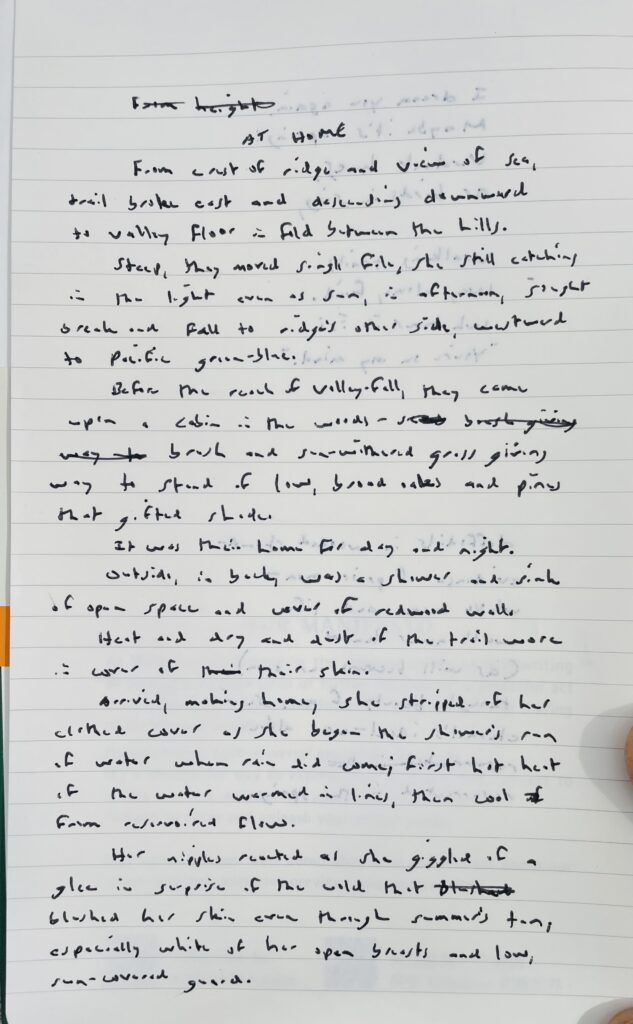 From height
AT HOME
From crest of ridge and view of sea,
trail broke east and descending downward
to valley floor in fold between the hills.
Steep, they moved single file, she still catching
in the light even as sun, in afternoon, sought
break and fall to ridge's other side, westward
to Pacific green-blue.
Before the reach of valley-fall, they came
upon a cabin in the woods – brush giving
way to brush and sun-withered grass giving
way to stand of low, broad oaks and pines
that gifted shade.
It was their home for day and night.
Outside, in back, was a shower and sink
of open space and cover of redwood walls
Heat and dry and dust of the trail wore
in cover of their their skin.
Arrived, making home, she stripped of her
clothed cover as she began the shower's run
of water when rain did come; first hot heat
of the water warmed in lines, then cool
from reservoired flow.
Her nipples reacted as she giggled of a
glee in surprise of the cold that blushed
blushed her skin even through summer's tan,
especially white of her open breasts and low,
sun-covered guard.